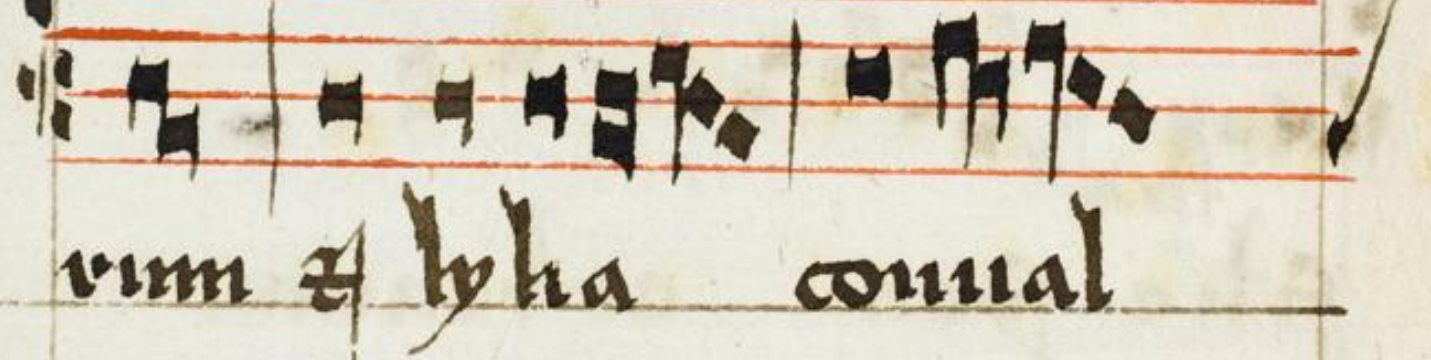 rum ⁊ lylia conual